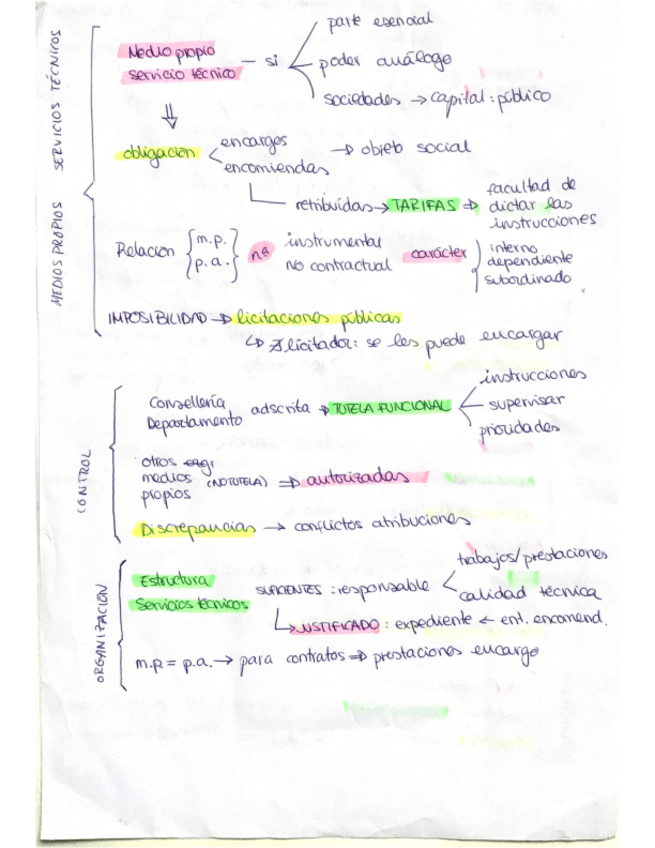 MEDIOS PROPIOS SERVICIOS TÉCNICOS
Medio propio
servicio técnico
— si
parte esencial
poder análogo
sociedades → capital: público
⇓
obligación
encargos
encomiendas
→ objeto social
retribuidas → TARIFAS ⇒
facultad de
dictar las
instrucciones
Relacion { m.p. p.a. }
nª
instrumental
no contractual
carácter
interno
dependiente
subordinado
IMPOSIBILIDAD → licitaciones públicas
↳ ∄ licitador: se les puede encargar
CONTROL
Consellería
Departamento
adscrita → TUTELA FUNCIONAL
instrucciones
supervisar
prioridades
otros
medios (NO TUTELA) ⇒ autorizadas
propios
Discrepancias → conflictos atribuciones
ORGANIZACIÓN
Estructura
Servicios técnicos
SUFICIENTES: responsable
trabajos/prestaciones
calidad técnica
↳ JUSTIFICADO: expediente ← ent. encomend.
m.p = p.a. → para contratos ⇒ prestaciones encargo